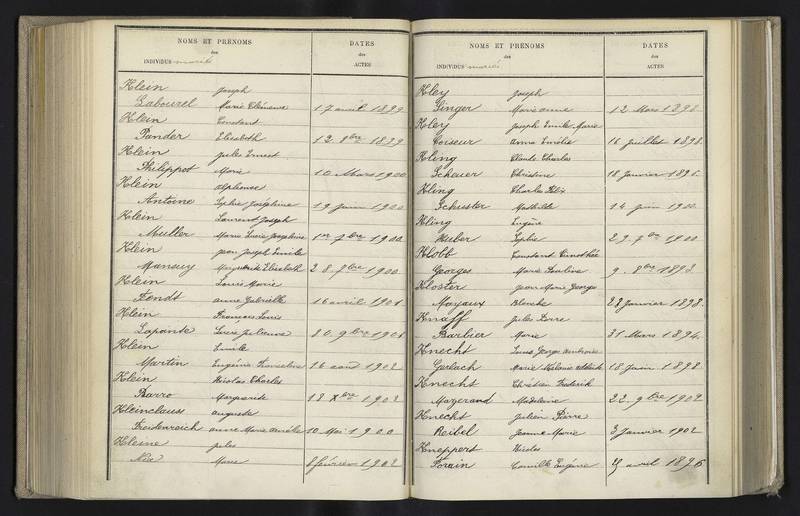 NOMS ET PRÉNOMS
des
INDIVIDUS mariés
DATES
des
ACTES
Klein Joseph
Labourel Marie Clémence 17 avril 1899
Klein Constant
Pander Elisabeth 12 8bre 1899
Klein Jules Ernest
Philippot Marie 10 Mars 1900
Klein Alphonse
Antoine Sophie Joséphine 19 Juin 1900
Klein Laurent Joseph
Muller Marie Lucie Joséphine 1er 7bre 1900
Klein Jean Joseph Emile
Mansuy Marguerite Elisabeth 28 7bre 1900
Klein Louis Marie
Bondt Anne Gabrielle 16 avril 1901
Klein François Louis
Laponte Julienne 20 9bre 1901
Klein Emile
Martin Eugénie 16 août 1902
Klein Nicolas Charles
Barro Marguerite 18 Xbre 1902
Kleinclauss Auguste
Freidenreich Anne Marie Amélie 10 Mai 1900
Kleine Jules
Nex Marie 8 février 1902
NOMS ET PRÉNOMS
des
INDIVIDUS mariés
DATES
des
ACTES
Kley Joseph
Ginger Marie Anne 12 Mars 1898
Kley Joseph Emile Marie
Loiseur Anna Emélie 16 Juillet 1898
Kling Claude Charles
Scheuer Christine 18 Janvier 1896
Kling Charles Félix
Schuster Mathilde 14 Juin 1900
Kling Eugène
Huber Sophie 29 7bre 1900
Klobb Constant Timothée
Georges Marie Pauline 9 8bre 1893
Kloster Jean Marie Georges
Mayaux Blanche 22 Janvier 1898
Knaff Jules Pierre
Barbier Marie 31 Mars 1894
Knecht Louis George Ambroise
Gerlach Marie Mélanie 18 Juin 1898
Knecht Chrétien Frédérik
Mazerand Madeleine 22 9bre 1902
Knecht Julien Pierre
Reibel Jeanne Marie 3 Janvier 1902
Kneppert Nicolas
Forain Camille Eugénie avril 1896